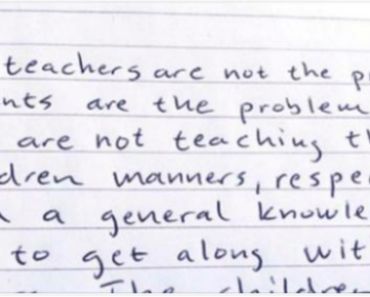 teachers are not the p
nts are the problem
are not teaching th
dren manners, respe
a general knowle
to get along wit
The children